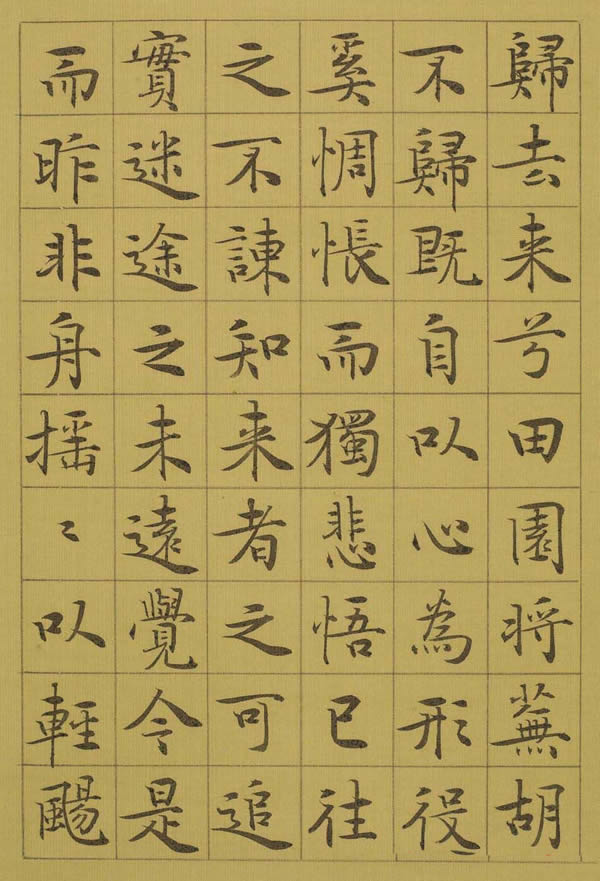 歸去来兮田園将蕪胡
不歸既自以心為形役
奚惆悵而獨悲悟已往
之不諫知来者之可追
實迷途之未遠覺今是
而昨非舟搖〻以輕颺